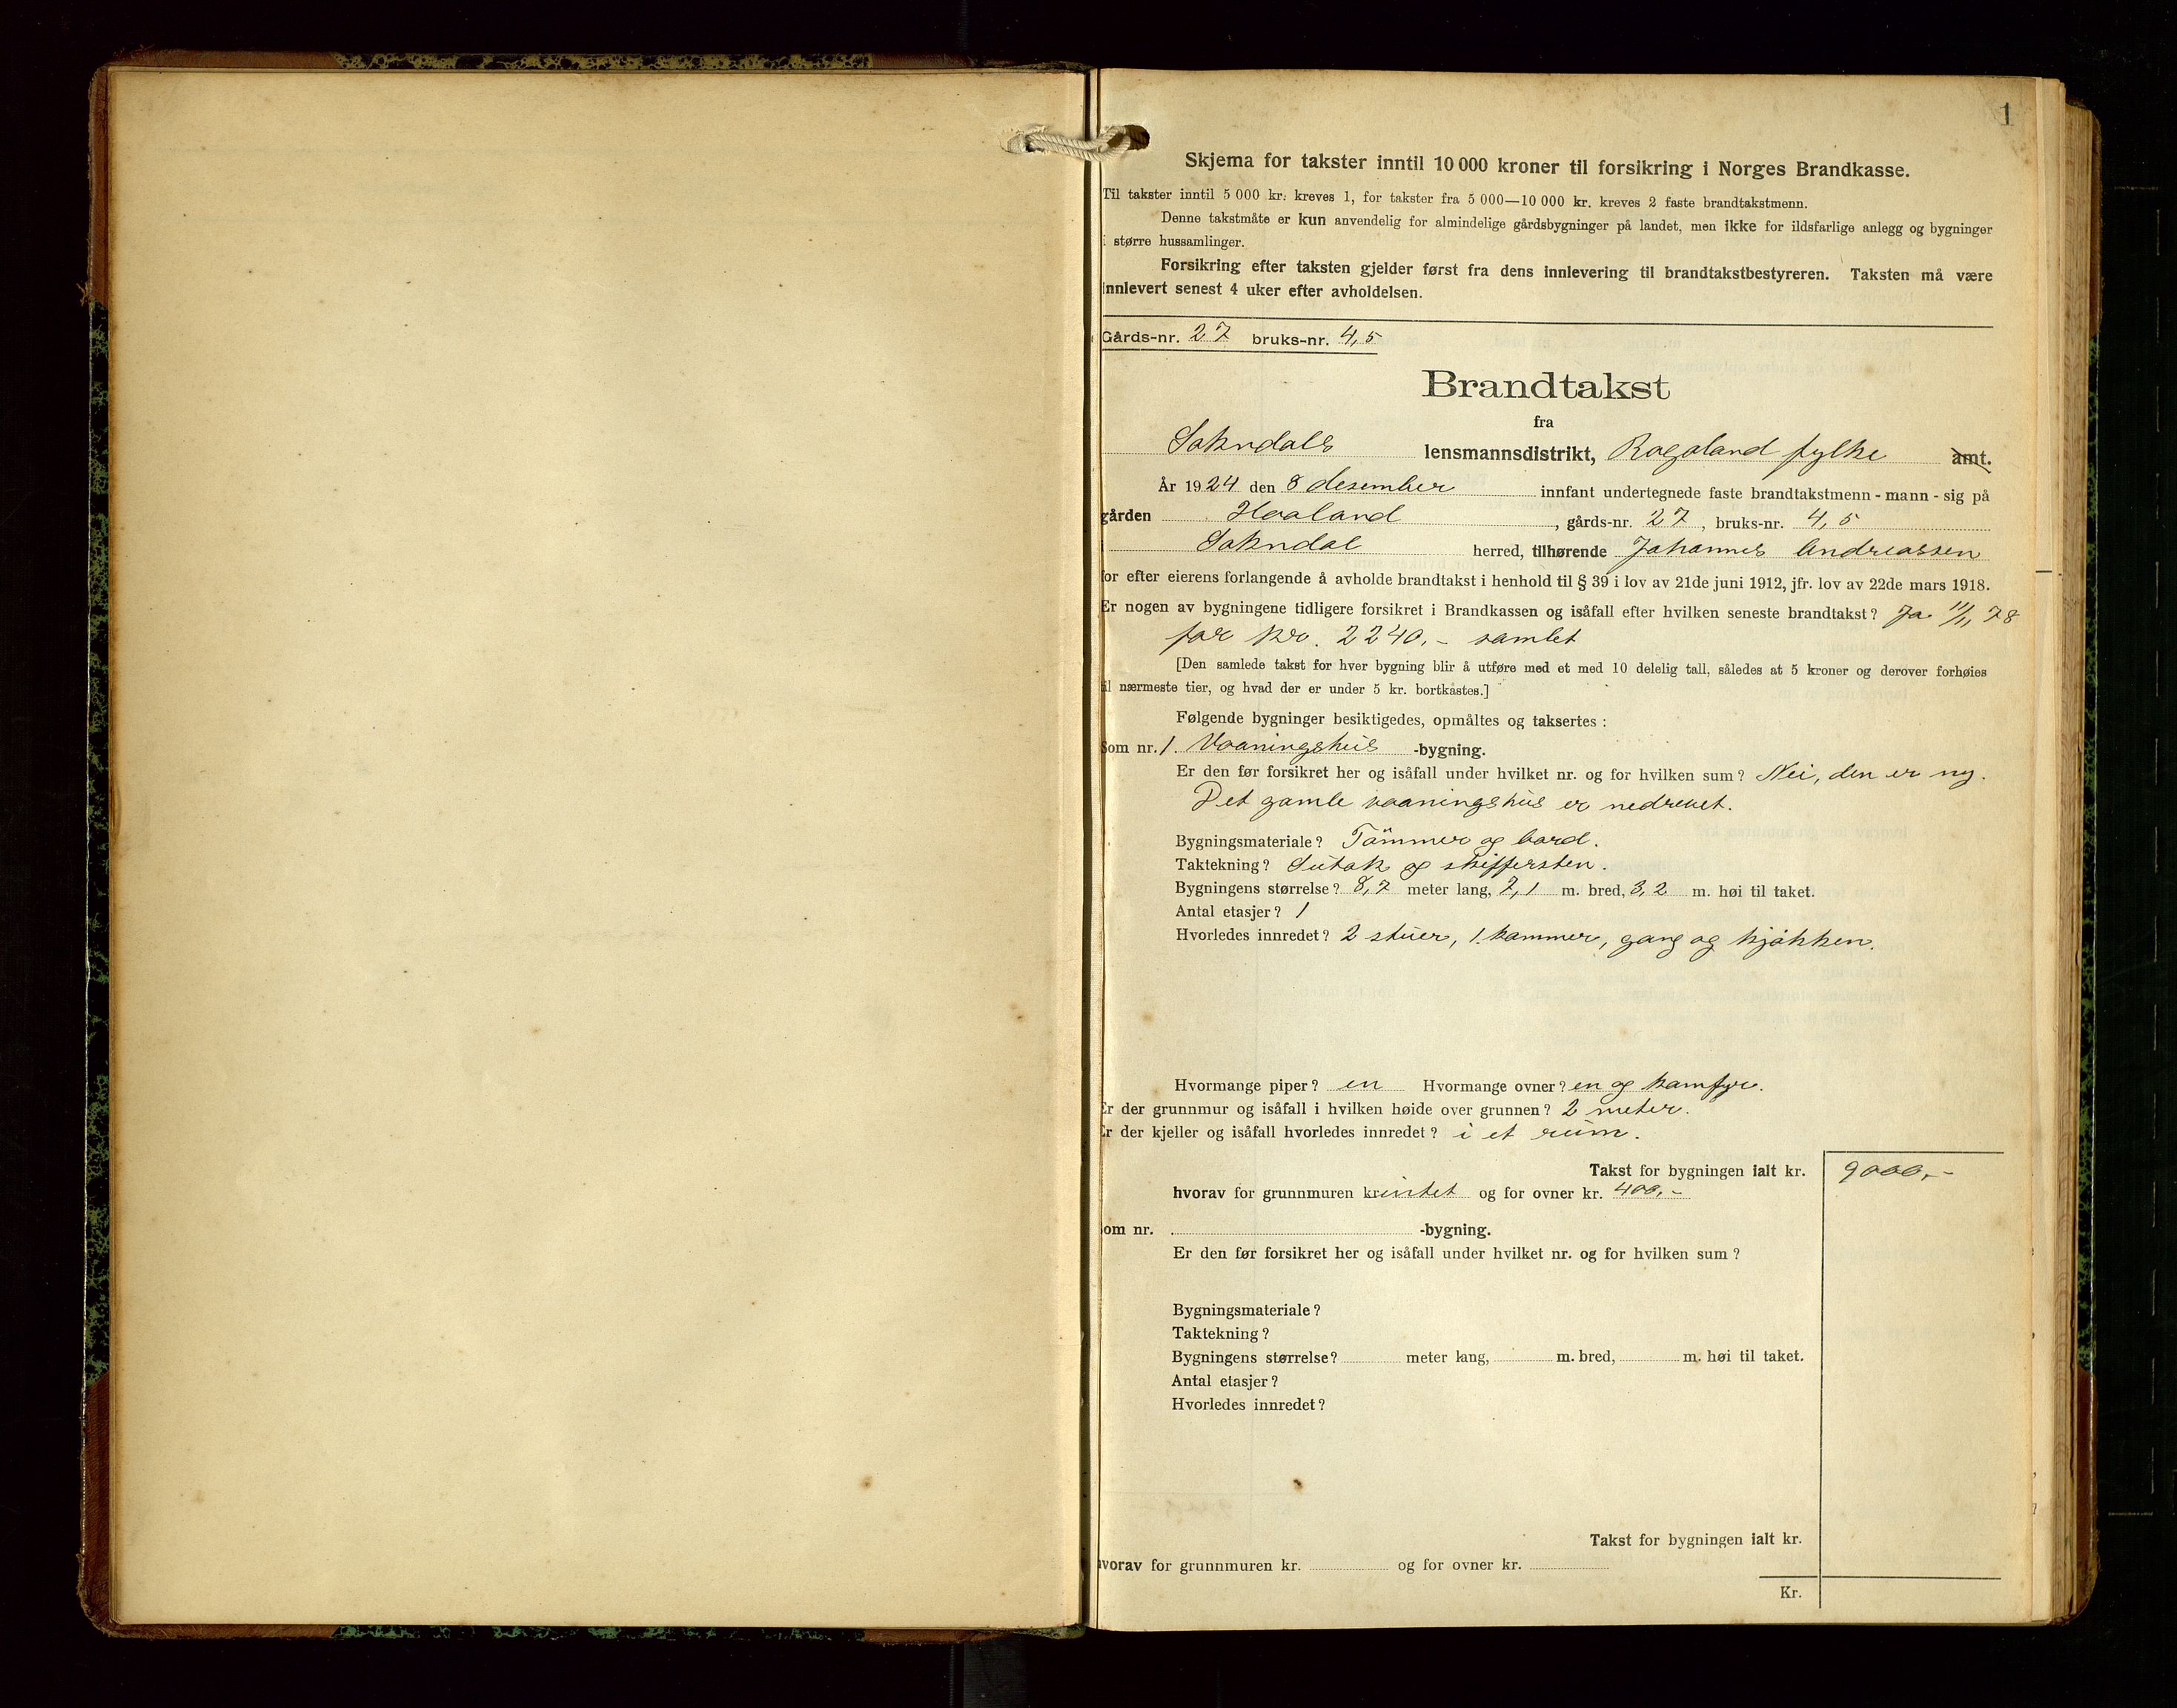 1
Skjema for takster inntil 10 000 kroner til forsikring i Norges Brandkasse.
Til takster inntil 5 000 kr. kreves 1, for takster fra 5 000—10 000 kr. kreves 2 faste brandtakstmenn.
Denne takstmåte er kun anvendelig for almindelige gårdsbygninger på landet, men ikke for ildsfarlige anlegg og bygninger
i større hussamlinger.
Forsikring efter taksten gjelder først fra dens innlevering til brandtakstbestyreren. Taksten må være
innlevert senest 4 uker efter avholdelsen.
Gårds-nr. 27 bruks-nr. 4,5
Brandtakst
fra
Sokndals lensmannsdistrikt, Rogaland fylke amt.
År 1924 den 8 desember innfant undertegnede faste brandtakstmenn - mann - sig på
gården Haaland, gårds-nr. 27, bruks-nr. 4,5
Sokndal herred, tilhørende Johannes Andreassen
for efter eierens forlangende å avholde brandtakst i henhold til § 39 i lov av 21de juni 1912, jfr. lov av 22de mars 1918.
Er nogen av bygningene tidligere forsikret i Brandkassen og isåfall efter hvilken seneste brandtakst? Ja 11/11 78
for kr. 2240,- samlet
[Den samlede takst for hver bygning blir å utføre med et med 10 delelig tall, således at 5 kroner og derover forhøies
til nærmeste tier, og hvad der er under 5 kr. bortkastes.]
Følgende bygninger besiktigedes, opmåltes og taksertes :
Som nr. 1. Vaaningshus -bygning.
Er den før forsikret her og isåfall under hvilket nr. og for hvilken sum? Nei, den er ny.
Det gamle vaaningshus er nedrevet.
Bygningsmateriale? Tømmer og bord.
Taktekning? Sutak og skiffersten.
Bygningens størrelse? 8,7 meter lang, 7,1 m. bred, 3,2 m. høi til taket.
Antal etasjer? 1
Hvorledes innredet? 2 stuer, 1. kammer, gang og kjøkken.
Hvormange piper? en Hvormange ovner? en og komfyr.
Er der grunnmur og isåfall i hvilken høide over grunnen? 2 meter.
Er der kjeller og isåfall hvorledes innredet? i et rum.
Takst for bygningen ialt kr. 9000,-
hvorav for grunnmuren kr. intet og for ovner kr. 400,-
Som nr. -bygning.
Er den før forsikret her og isåfall under hvilket nr. og for hvilken sum?
Bygningsmateriale?
Taktekning?
Bygningens størrelse? meter lang, m. bred, m. høi til taket.
Antal etasjer?
Hvorledes innredet?
Takst for bygningen ialt kr.
hvorav for grunnmuren kr. og for ovner kr.
Kr.